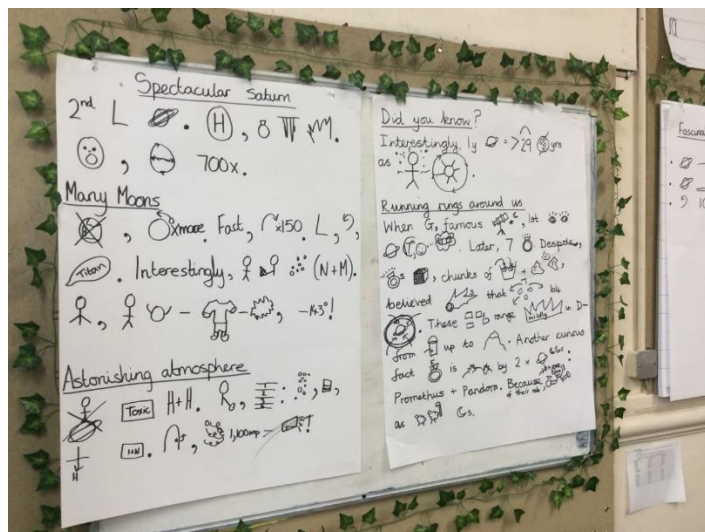 Spectacular Saturn
2nd L . H,
, 700x.
Many Moons
, more. Fast, x150. L, ,
Titan. Interestingly, (N+M).
, - - , -143°!
Astonishing atmosphere
Toxic H+H. , : , ,
. , 1,100mp - !
H
Did you know?
Interestingly, 1y = >29 yrs
as .
Running rings around us
When G, famous , 1st
. Later, 7 . Despite,
s , chunks of + ,
believed that b4
. These range wildly in D-
from up to . Another curious
fact is by 2 x :
Promethus + Pandora. Because of their role,
as Gs.
Fascina